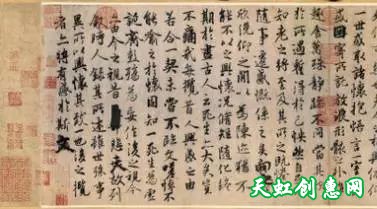 一世或取諸懷抱悟言一室
或因寄所託放浪形骸之
趣舍萬殊靜躁不同當
於所遇暫得於己快然自
知老之將至及其所之既惓
隨事遷感慨係之矣向之
欣俛仰之間以為陳迹猶不
能不以之興懷況脩短隨化終
期於盡古人云死生亦大矣豈
不痛哉每攬昔人興感之由
若合一契未嘗不臨文嗟悼不
能喻之於懷固知一死生為虛
誕齊彭殤為妄作後之視今
亦由今之視昔悲夫故列
叙時人錄其所述雖世殊事
異所以興懷其致一也後之攬
者亦將有感於斯文
天虹创意网